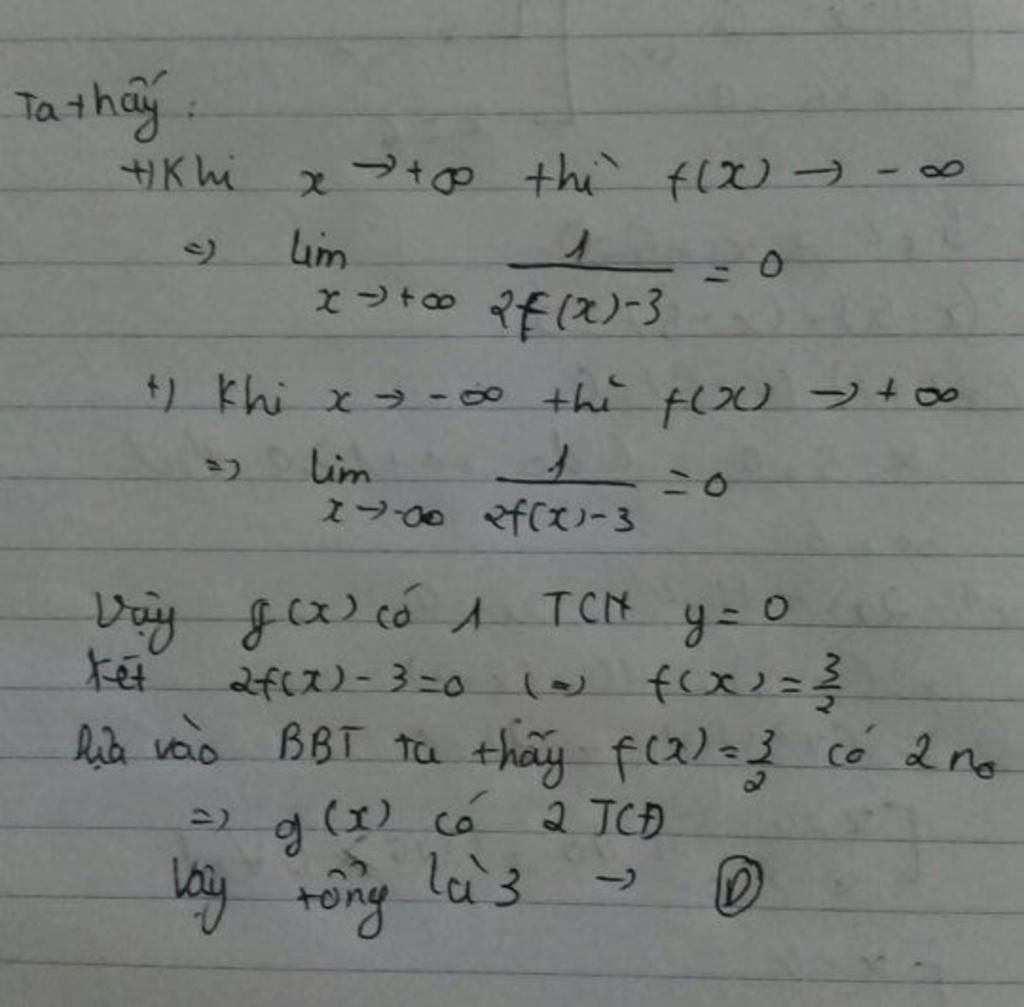 Ta thấy :
+) Khi x → +∞ thì f(x) → -∞
=> lim x→+∞ 1/(2f(x)-3) = 0
+) Khi x → -∞ thì f(x) → +∞
=> lim x→-∞ 1/(2f(x)-3) = 0
Vậy g(x) có 1 TCN y = 0
Xét 2f(x) - 3 = 0 (=) f(x) = 3/2
Dựa vào BBT ta thấy f(x) = 3/2 có 2 no
=> g(x) có 2 TCĐ
Vậy tổng là 3 → D